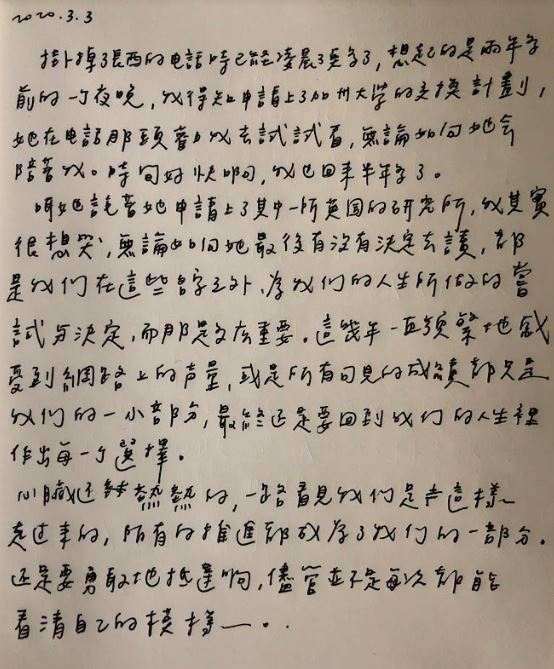 2020.3.3
掛掉了張西的电話時已經凌晨3点多了，想起的是兩年多
前的一个夜晚，我得知申請上了加州大学的交換計劃，
她在电話那頭鼓励我去試試看，無論如何她会
陪著我。時间好快啊，我也回来半年多了。
听她說著她申請上了其中一所英国的研究所，我其實
很想哭，無論如何她最後有沒有決定去讀，都
是我們在這些文字之外，為我們的人生所做的嘗
試与決定，而那是多么重要。這幾年一直頻繁地感
受到網路上的声量，或是所有可見的成績都只是
我們的一小部分，最終还是要回到我們的人生裡
作出每一个選擇。
心臟还熱熱的，一路看見我們是這樣
走过来的，所有的推進都成為了我們的一部分。
还是要勇敢地抵達啊，儘管並不是每次都能
看清自己的模樣。